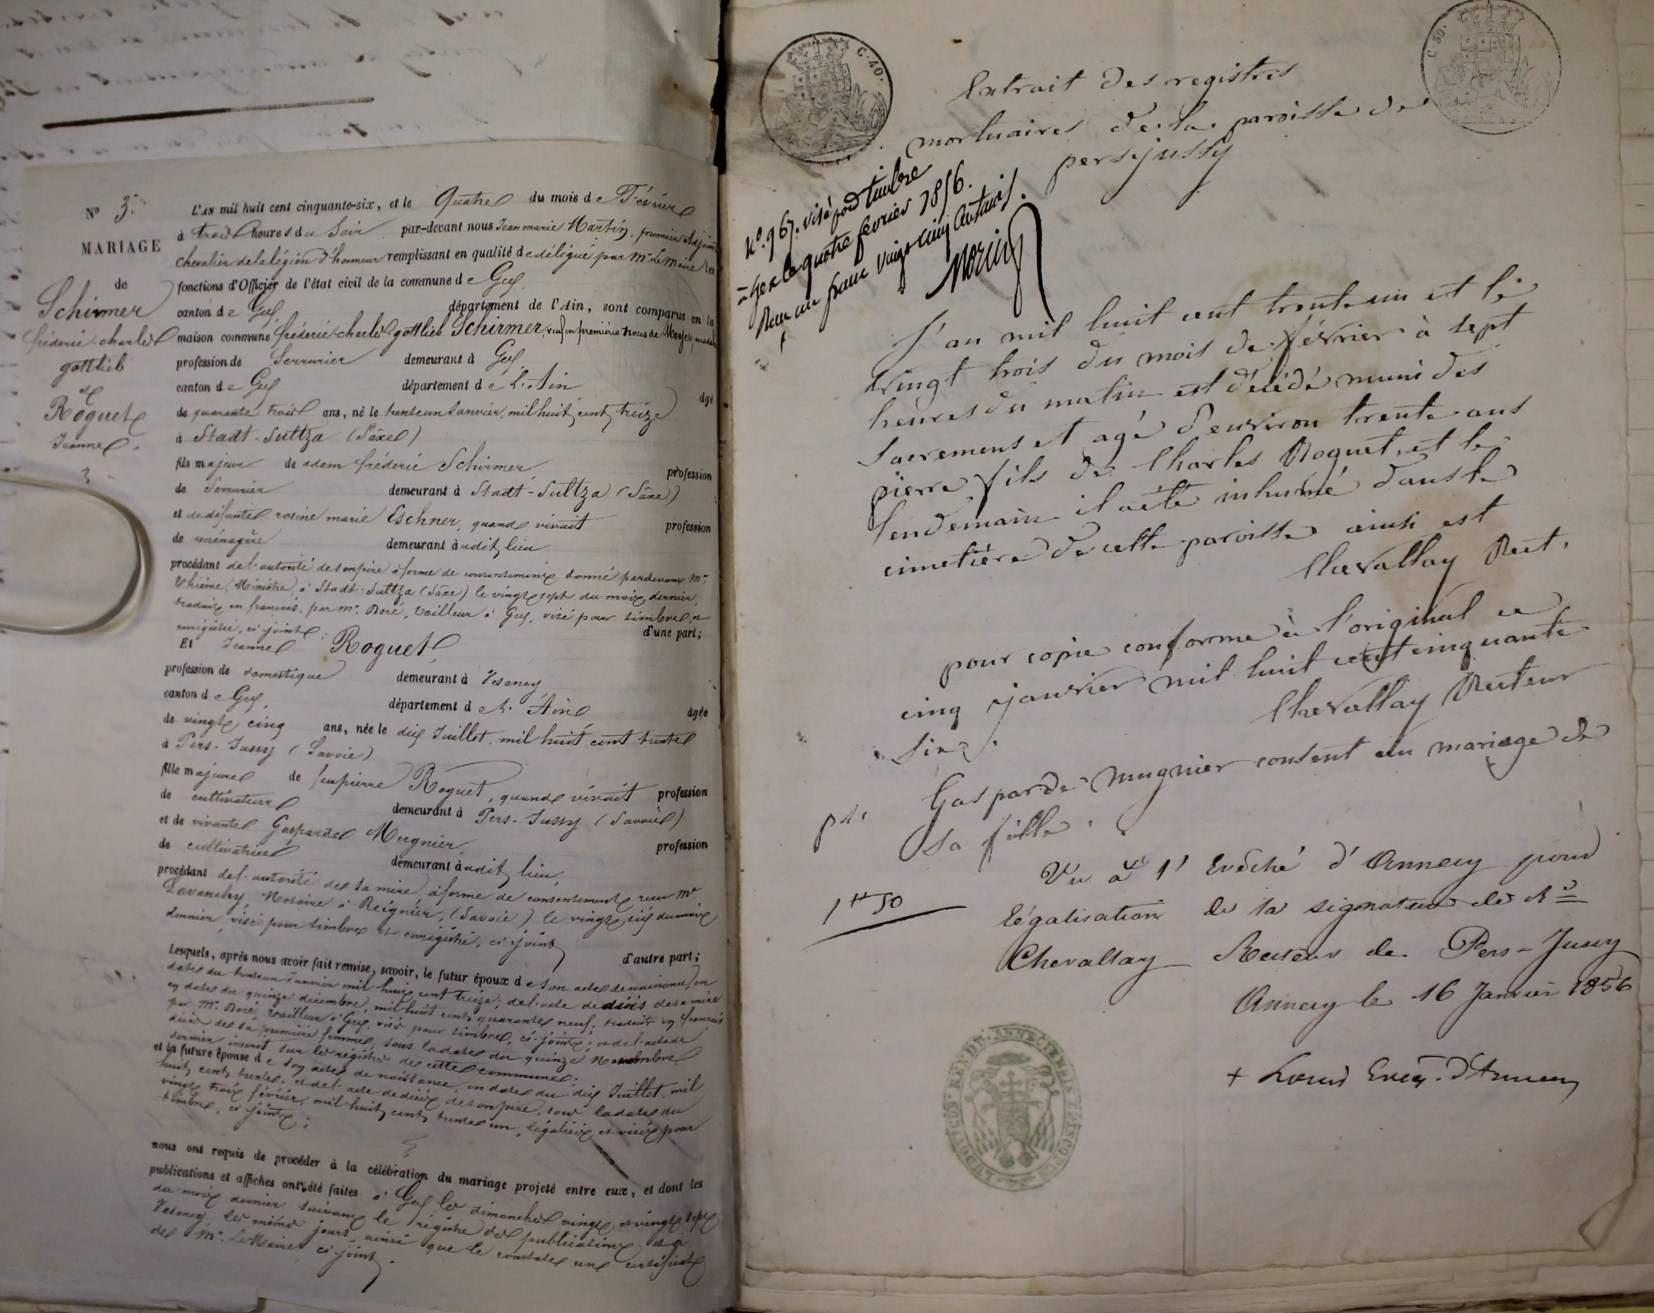 N° 3.
MARIAGE
de
Schirmer
fréderic charles
gottlieb
et
Roguet
Jeanne.
L'AN mil huit cent cinquante-six, et le Quatre du mois de Février
à trois heures du Soir par-devant nous Jean marie Martin, premier Adjoint
chevalier de la légion d'honneur remplissant en qualité de délégué par Mr. Le Maire les
fonctions d'Officier de l'état civil de la commune de Gex
canton de Gex département de l'Ain, sont comparus en la
maison commune fréderic charles gottlieb Schirmer, veuf en premières noces de
profession de Serrurier demeurant à Gex
canton de Gex département de L'Ain âgé
de quarante trois ans, né le trente un Janvier mil huit cent treize
à Stadt-Sultza (Saxe)
fils majeur de adam fréderic Schirmer profession
de Serrurier demeurant à Stadt-Sultza (Saxe)
et de défunte rosine marie Eschner, quand vivait profession
de ménagère demeurant audit lieu
procédant de l'autorité de son père à forme de consentement donné pardevant Mr.
Thieme, Ministre, à Stadt-Sultza (Saxe) le vingt sept du mois dernier,
traduit en français, par Mr. Doré, tailleur à Gex, visé pour timbre, et
enrégistré, ci-joint; d'une part;
Et Jeanne Roguet
profession de domestique demeurant à Vesancy
canton de Gex département de L'Ain âgée
de vingt cinq ans, née le dix Juillet mil huit cent trente
à Pers-Jussy (Savoie)
fille majeure de feu pierre Roguet, quand vivait profession
de cultivateur demeurant à Pers-Jussy (Savoie)
et de vivante Gasparde Mugnier profession
de cultivatrice demeurant audit lieu,
procédant de l'autorité de sa mère à forme de consentement reçu Mr.
Lavanchy, Notaire à Reignier, (Savoie) le vingt six dernier
dernier, visé pour timbre et enrégistré, ci-joint, d'autre part;
Lesquels, après nous avoir fait remise, savoir, le futur époux de son acte de naissance, en
date du trente un Janvier mil huit cent treize; de l'acte de décès de sa mère
en date du quinze décembre, mil huit cent quarante neuf; traduit en français
par Mr. Doré, tailleur à Gex, visé pour timbre, ci-joints; et de l'acte de
décès de sa première femme, sous la date du quinze Novembre
dernier inscrit sur les régistres de cette commune;
et la future épouse de son acte de naissance, en date du dix Juillet mil
huit cent trente; et de l'acte de décès de son père, sous la date du
vingt trois février mil huit cent trente un, légalisés et visés pour
timbre, ci-joints;
nous ont requis de procéder à la célébration du mariage projeté entre eux, et dont les
publications et affiches ont été faites à Gex les dimanches vingt et vingt sept
du mois dernier suivant le régistre des publications, et à
Vesancy les mêmes jours, ainsi que le constate un certificat
de Mr. Le Maire, ci-joint.
C.40.
C.50.
Extrait des registres
mortuaires de la paroisse de
persjussy
N°. 967. visé pour timbre
à Gex le quatre février 1856.
Reçu un franc vingt cinq centimes.
Morin
L'an mil huit cent trente un et le
vingt trois du mois de février à sept
heures du matin est décédé muni des
Sacremens et agé d'environ trente ans
pierre fils de Charles Roguet, et le
lendemain il a été inhumé dans le
cimetière de cette paroisse ainsi est
Chevallay Rect.
pour copie conforme à l'original ce
cinq janvier mil huit cent cinquante
six. Chevallay Recteur
p.s. Gasparde mugnier consent au mariage de
sa fille.
1 50
Vu à l'Evêché d'Annecy pour
légalisation de la signature de Rd
Chevallay Recteur de Pers-Jussy
Annecy le 16 Janvier 1856
+ Louis Evêq. d'Annecy